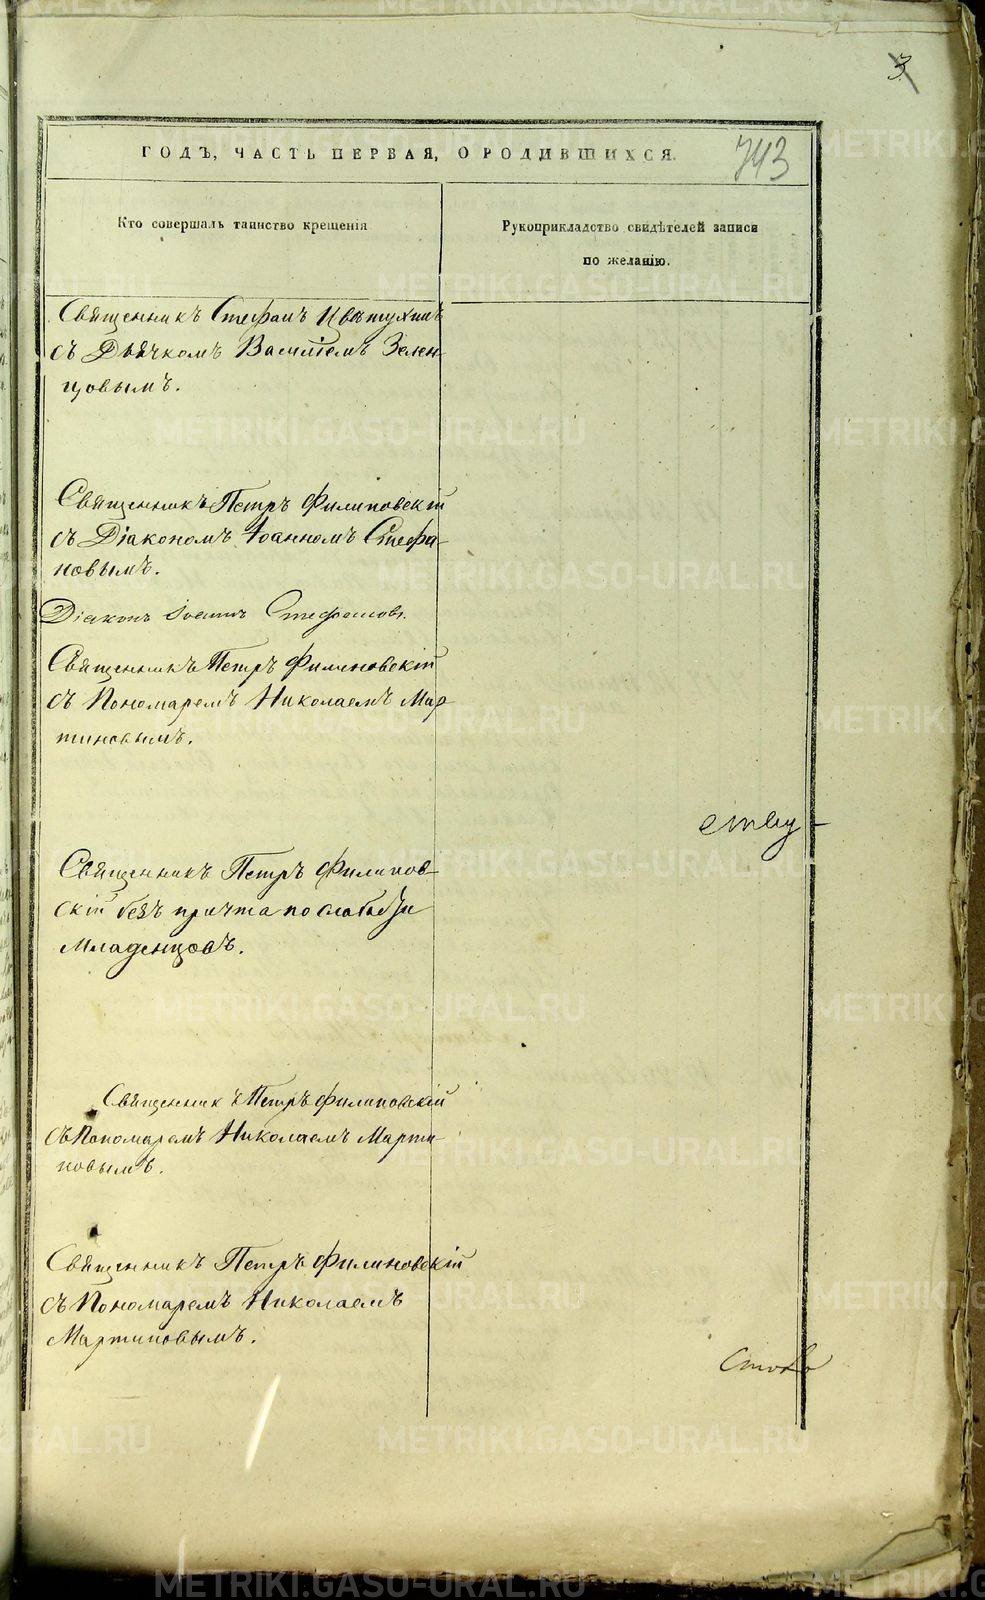 3
ГОДЪ, ЧАСТЬ ПЕРВАЯ, О РОДИВШИХСЯ.
743
Кто совершалъ таинство крещенія
Рукоприкладство свидѣтелей записи
по желанію.
Священникъ Стефанъ Цвѣтухинъ
съ Дьячкомъ Василіемъ Зелен-
цовымъ.
Священникъ Петръ Филиповскій
съ Діакономъ Іоанномъ Стефа-
новымъ.
Діаконъ Іоаннъ Стефановъ.
Священникъ Петръ Филиповскій
съ Пономаремъ Николаемъ Мар-
тиновымъ.
ству-
Священникъ Петръ Филипов-
скій безъ причта по слабости
Младенцовъ.
Священникъ Петръ Филиповскій
съ Пономаремъ Николаемъ Марти-
новымъ.
Священникъ Петръ Филиповскій
съ Пономаремъ Николаемъ
Мартиновымъ.
METRIKI.GASO-URAL.RU